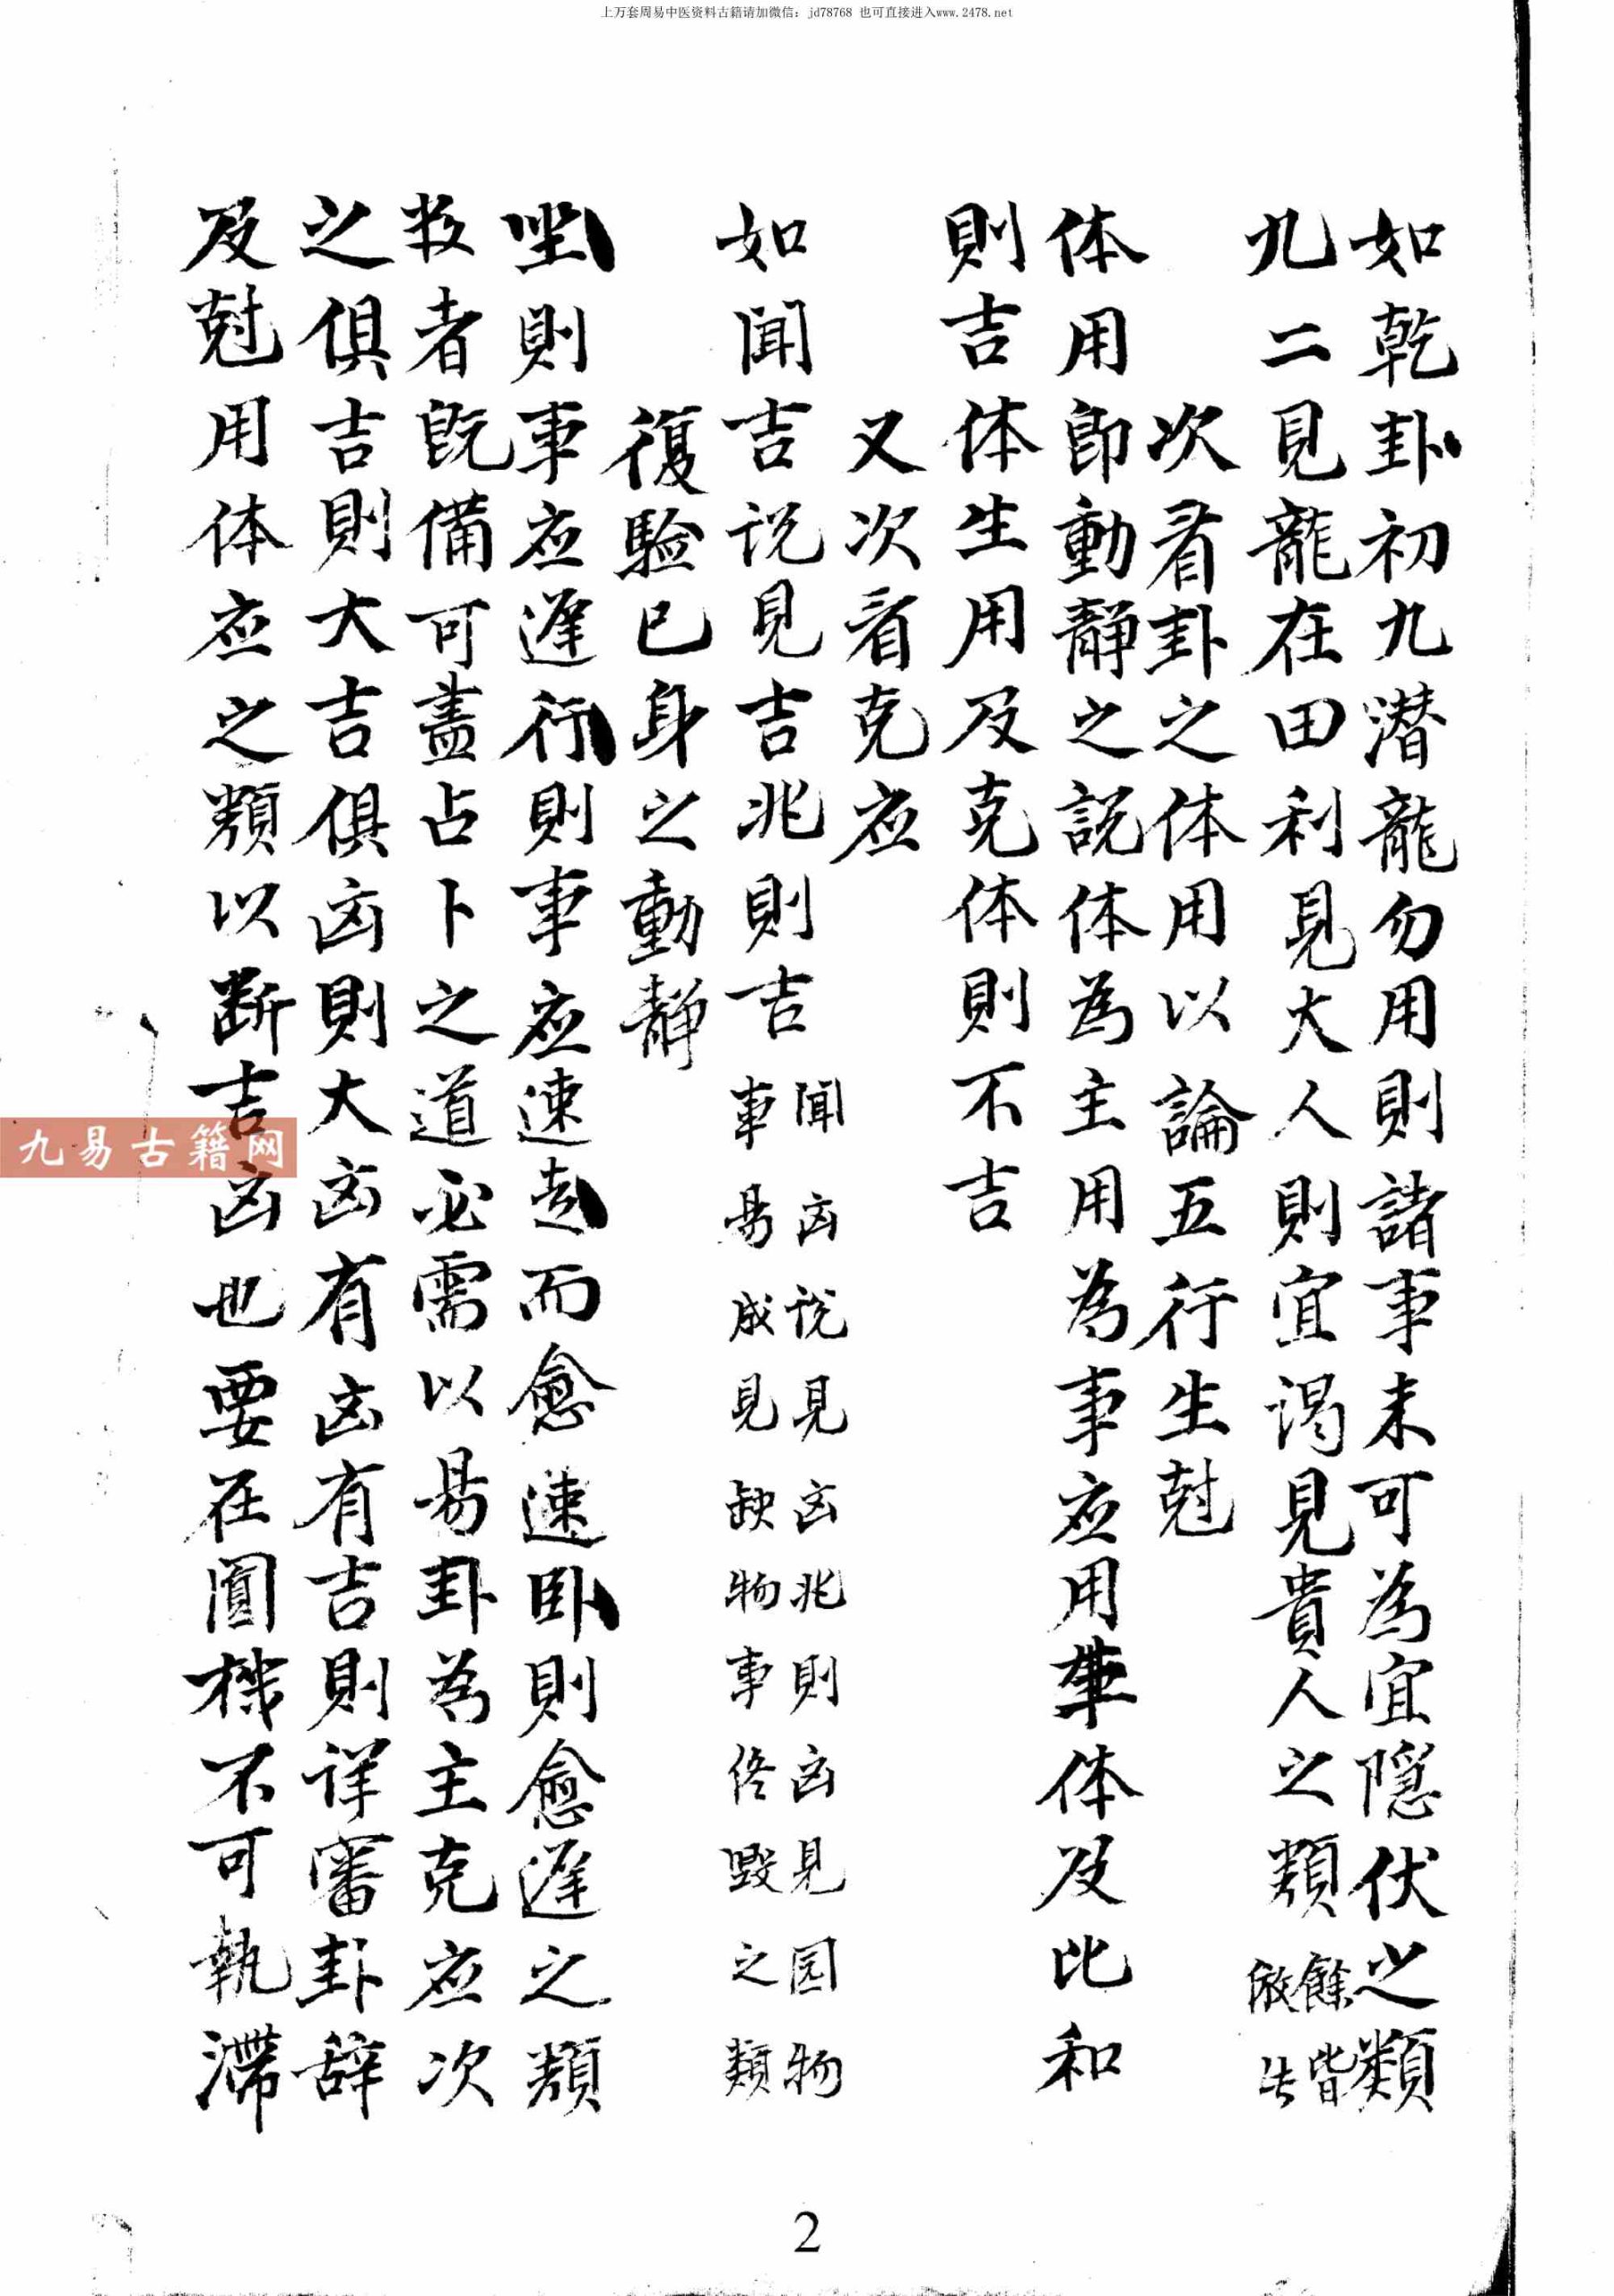 上万套周易中医资料古籍请加微信：jd78768 也可直接进入www.2478.net
如乾卦初九潜龍勿用則諸事未可為宜隠伏之類
九二見龍在田利見大人則宜谒見貴人之類餘皆倣此
次看卦之体用以論五行生尅
体用即動靜之説体為主用為事应用事体及比和
則吉体生用及克体則不吉
又次看克应
如聞吉说見吉兆則吉
聞凶说見凶兆則凶見园物
事易成見缺物事终毀之類
復驗已身之動靜
坐則事应遲行則事应速走而愈速卧則愈遲之類
者既備可盡占卜之道必需以易卦為主克应次
之俱吉則大吉俱凶則大凶有凶有吉則详審卦辞
及尅用体应之類以断吉凶也要在圓機不可執滯
九易古籍网
2